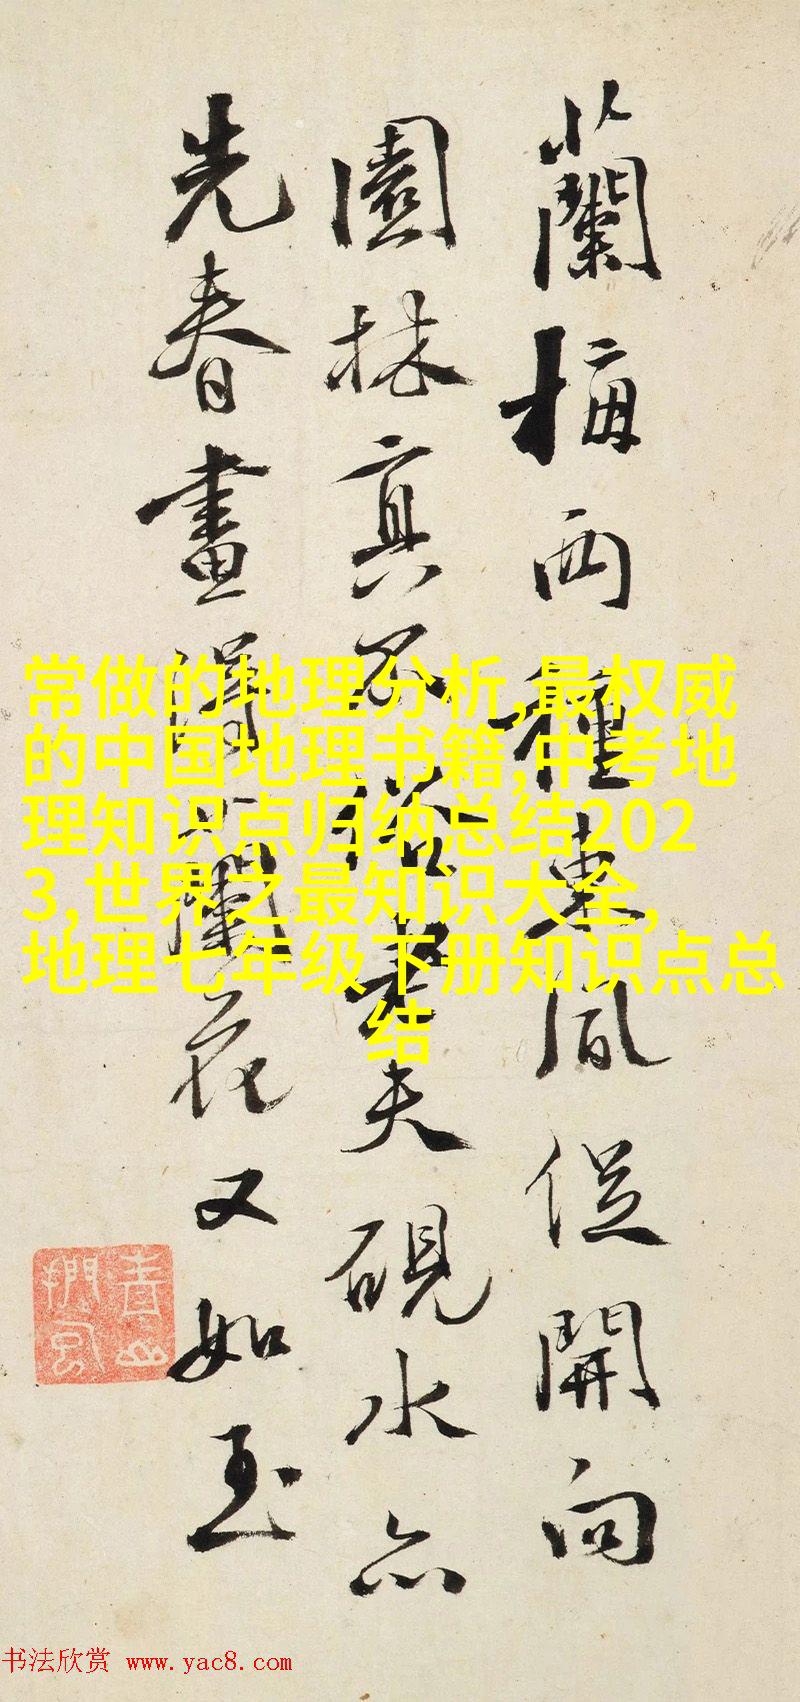 蘭梅两種東風從開向
園林真不俗老夫硯水亦
先春畫得蘭花又如玉
青山
捫虱
常做的地理分析,最权威
的中国地理书籍,中考地
理知识点归纳总结202
3,世界之最知识大全,
地理七年级下册知识点总
结
书法欣赏 www.yac8.com